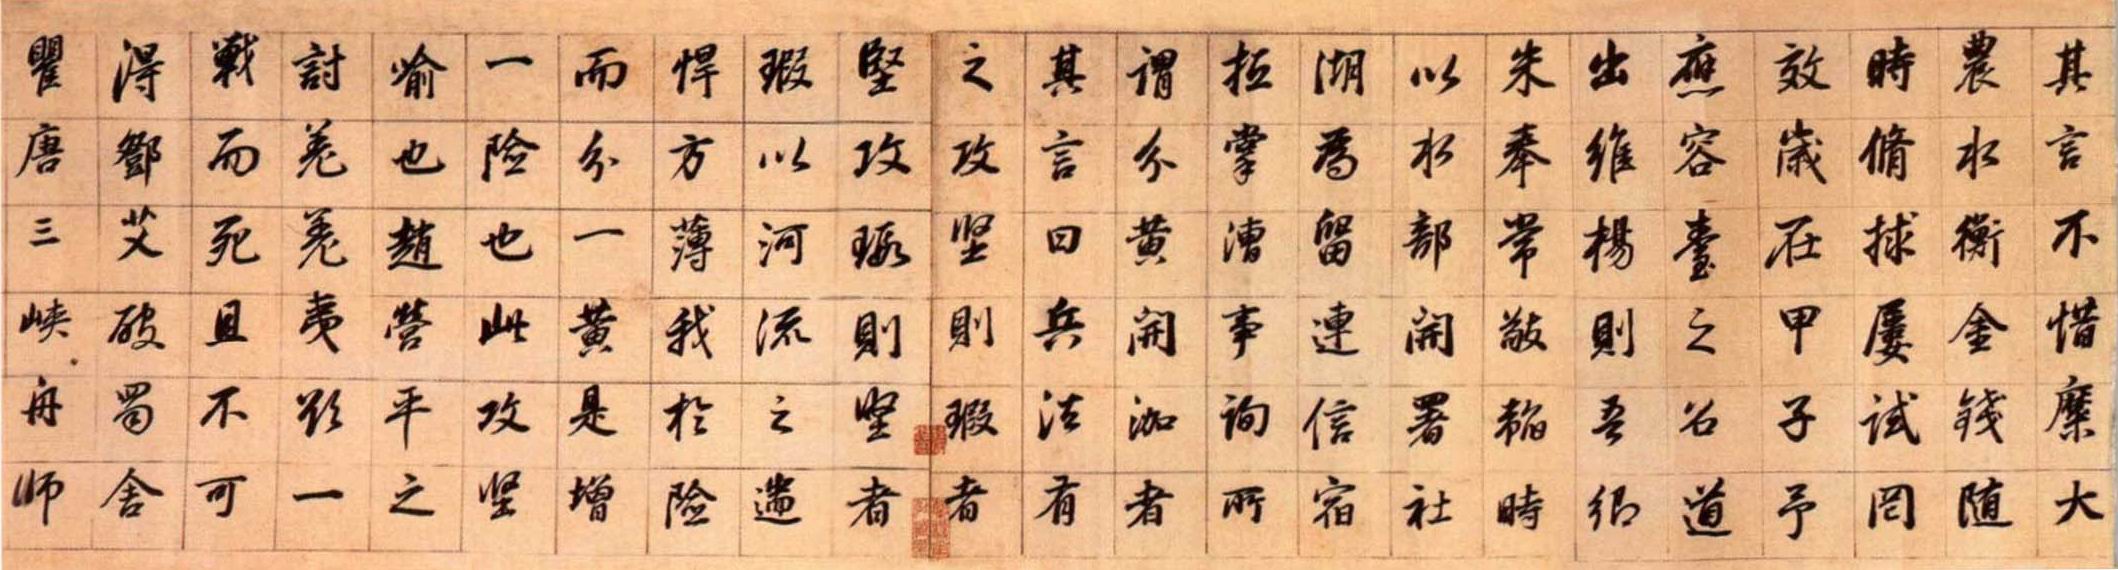 其言不惜糜大
農水衡金錢隨
時脩捄屢試罔
效歲在甲子予
應容臺之召道
出維楊則吾鄉
朱奉常敬韜時
以水部開署社
湖為留連信宿
抵掌漕事詢所
謂分黃開泇者
其言曰兵法有
之攻堅則瑕者
堅攻瑕則堅者
瑕以河流之遄
悍方薄我於險
而分一黃是增
一險也此攻堅
喻也趙營平之
討羌羌夷欲一
戰而死且不可
得鄧艾破蜀舍
瞿唐三峽舟師